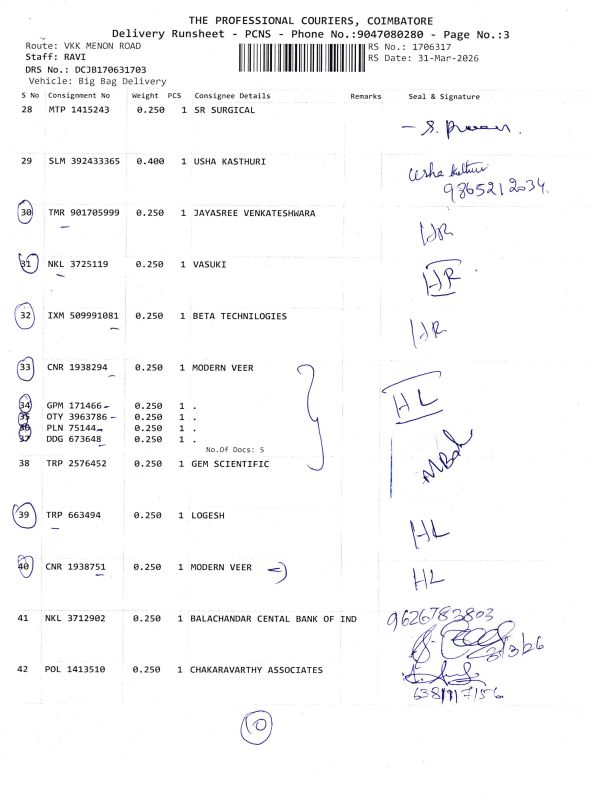 THE PROFESSIONAL COURIERS, COIMBATORE
Delivery Runsheet - PCNS - Phone No.:9047080280 - Page No.:3
Route: VKK MENON ROAD RS No.: 1706317
Staff: RAVI RS Date: 31-Mar-2026
DRS No.: DCJB170631703
Vehicle: Big Bag Delivery
S No Consignment No Weight PCS Consignee Details Remarks Seal & Signature
28 MTP 1415243 0.250 1 SR SURGICAL
29 SLM 392433365 0.400 1 USHA KASTHURI
Usha Kasthuri
9865212034.
30 TMR 901705999 0.250 1 JAYASREE VENKATESHWARA
HR
31 NKL 3725119 0.250 1 VASUKI HR
32 IXM 509991081 0.250 1 BETA TECHNILOGIES
HR
33 CNR 1938294 0.250 1 MODERN VEER
HL
34 GPM 171466 0.250 1 .
35 OTY 3963786 0.250 1 .
36 PLN 75144 0.250 1 .
37 DDG 673648 0.250 1 .
No.Of Docs: 5
38 TRP 2576452 0.250 1 GEM SCIENTIFIC
39 TRP 663494 0.250 1 LOGESH
HL
40 CNR 1938751 0.250 1 MODERN VEER
HL
41 NKL 3712902 0.250 1 BALACHANDAR CENTAL BANK OF IND
9626783803
31/3/26
42 POL 1413510 0.250 1 CHAKARAVARTHY ASSOCIATES
10